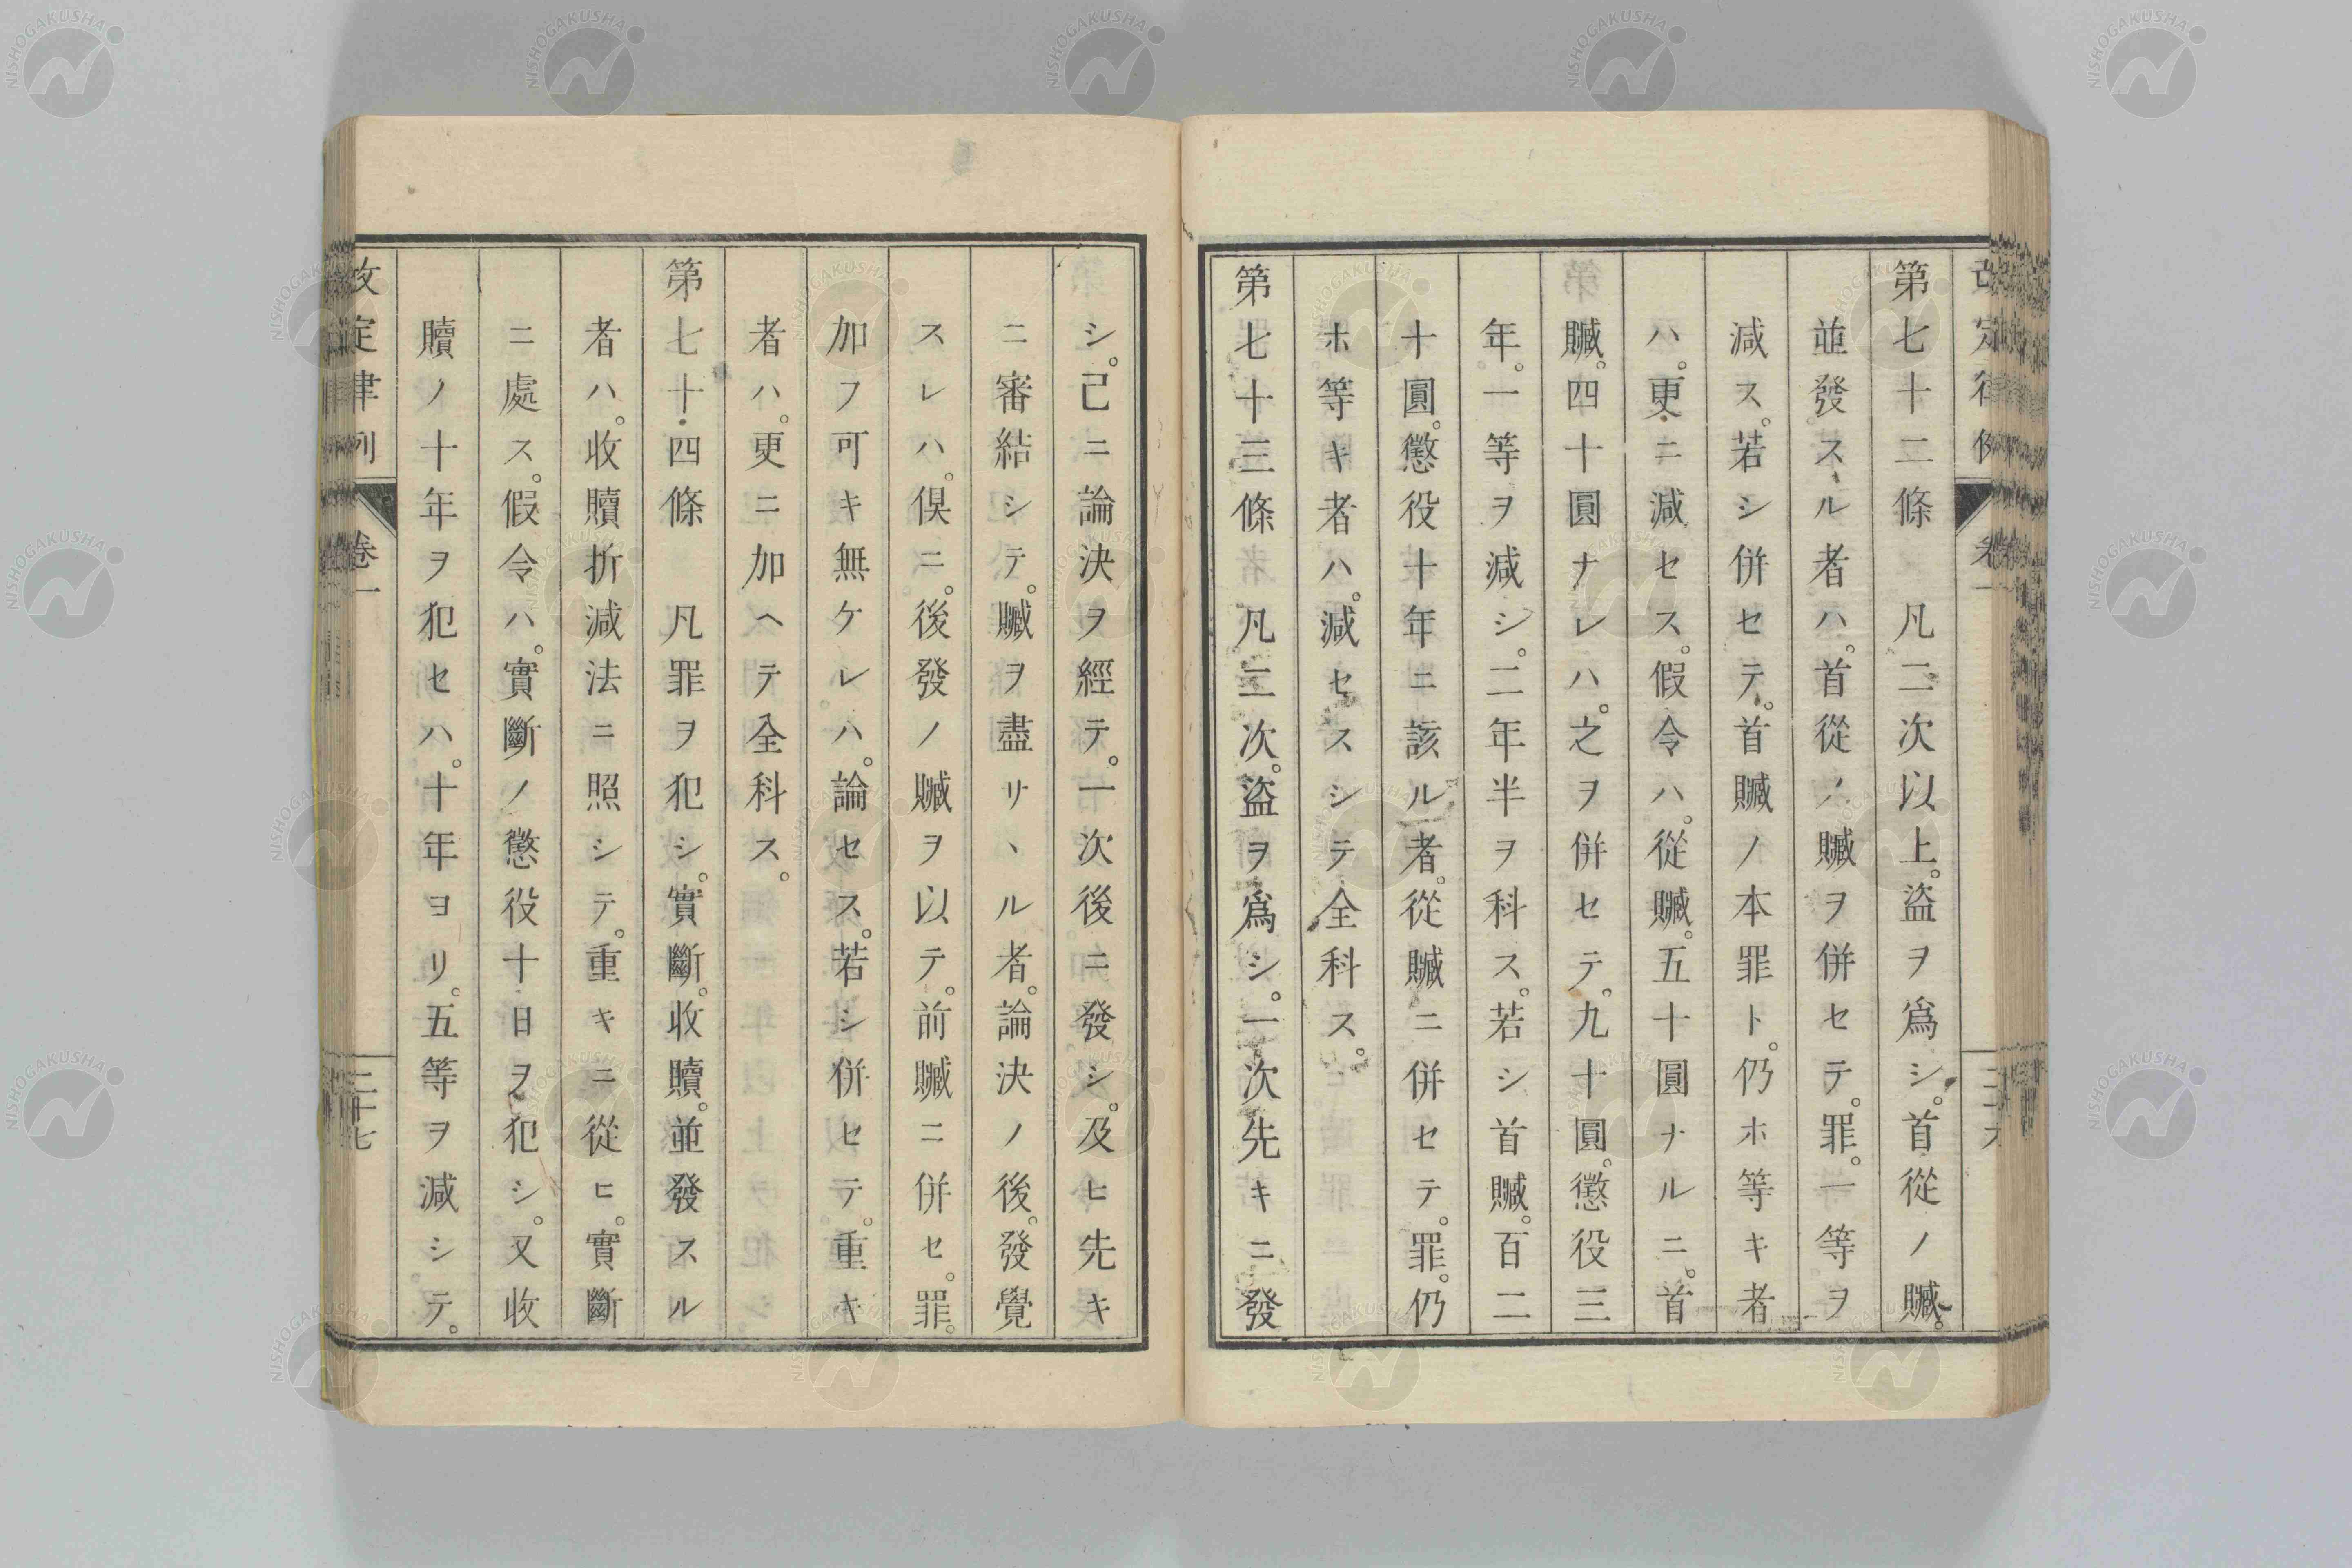 改定律例 卷一
第七十二條 凡二次以上。盜ヲ爲シ。首從ノ贓。
並發スル者ハ。首從ノ贓ヲ併セテ。罪。一等ヲ
減ス。若シ併セテ。首贓ノ本罪ト。仍ホ等キ者
ハ。更ニ減セス。假令ハ。從贓。五十圓ナルニ。首
贓。四十圓ナレハ。之ヲ併セテ。九十圓。懲役三
年。一等ヲ減シ。二年半ヲ科ス。若シ首贓。百二
十圓。懲役十年ニ該ル者。從贓ニ併セテ。罪。仍
ホ等キ者ハ。減セスシテ全科ス。
第七十三條 凡二次。盜ヲ爲シ。一次先キニ發
シ。已ニ論決ヲ經テ。一次後ニ發シ。及ヒ先キ
ニ審結シテ。贓ヲ盡サヽル者。論決ノ後。發覺
スレハ。俱ニ。後發ノ贓ヲ以テ。前贓ニ併セ。罪。
加フ可キ無ケレハ。論セス。若シ併セテ。重キ
者ハ。更ニ加ヘテ全科ス。
第七十四條 凡罪ヲ犯シ。實斷。收贖。並發スル
者ハ。收贖折減法ニ照シテ。重キニ從ヒ。實斷
ニ處ス。假令ハ。實斷ノ懲役十日ヲ犯シ。又收
贖ノ十年ヲ犯セハ。十年ヨリ。五等ヲ減シテ。
改定律例 卷一 三十七
NISHOGAKUSHA